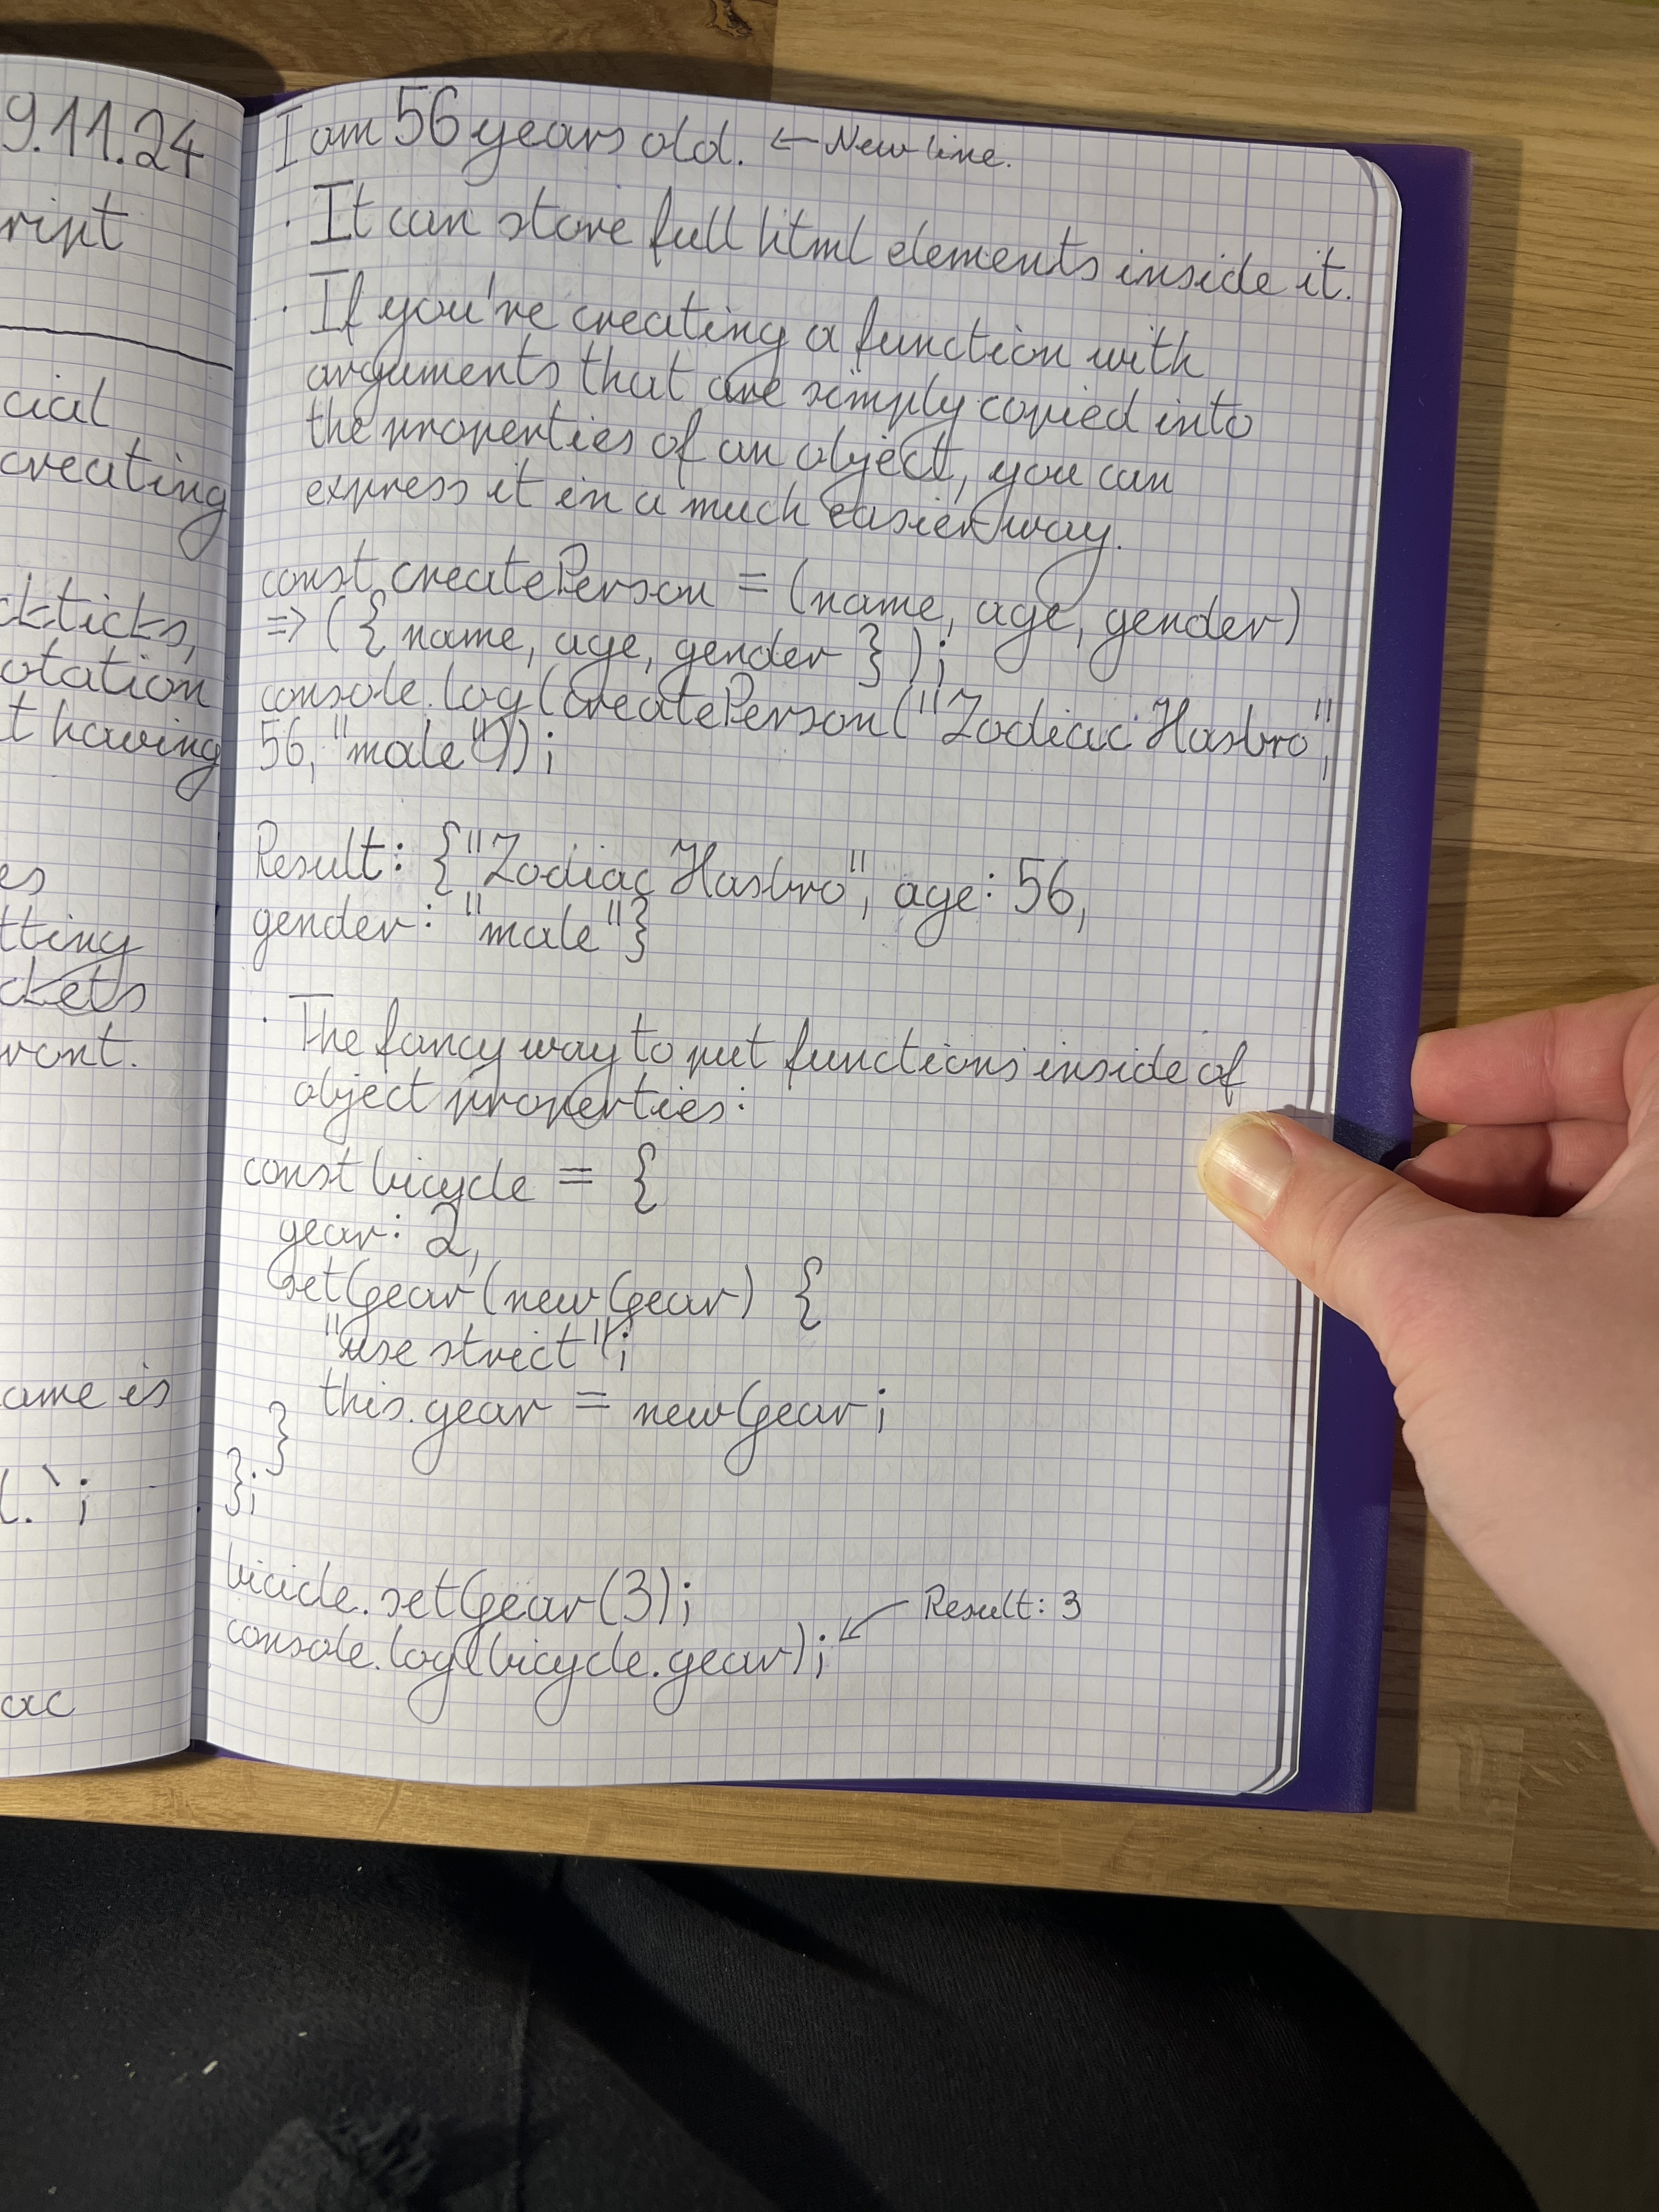 9.11.24
ript
cial
creating
ckticks,
otation
t having
es
tting
ckets
ront.
ame is
l.`;
ac
I am 56 years old. ← New line.
· It can store full html elements inside it.
· If you're creating a function with
arguments that are simply copied into
the properties of an object, you can
express it in a much easier way.
const createPerson = (name, age, gender)
=> ({ name, age, gender });
console.log(createPerson("Zodiac Hasbro",
56, "male"));
Result: {"Zodiac Hasbro", age: 56,
gender: "male"}
· The fancy way to put functions inside of
object properties:
const bicycle = {
gear: 2,
setGear(newGear) {
"use strict";
this.gear = newGear;
}
};
bicicle.setGear(3);
console.log(bicycle.gear); ← Result: 3